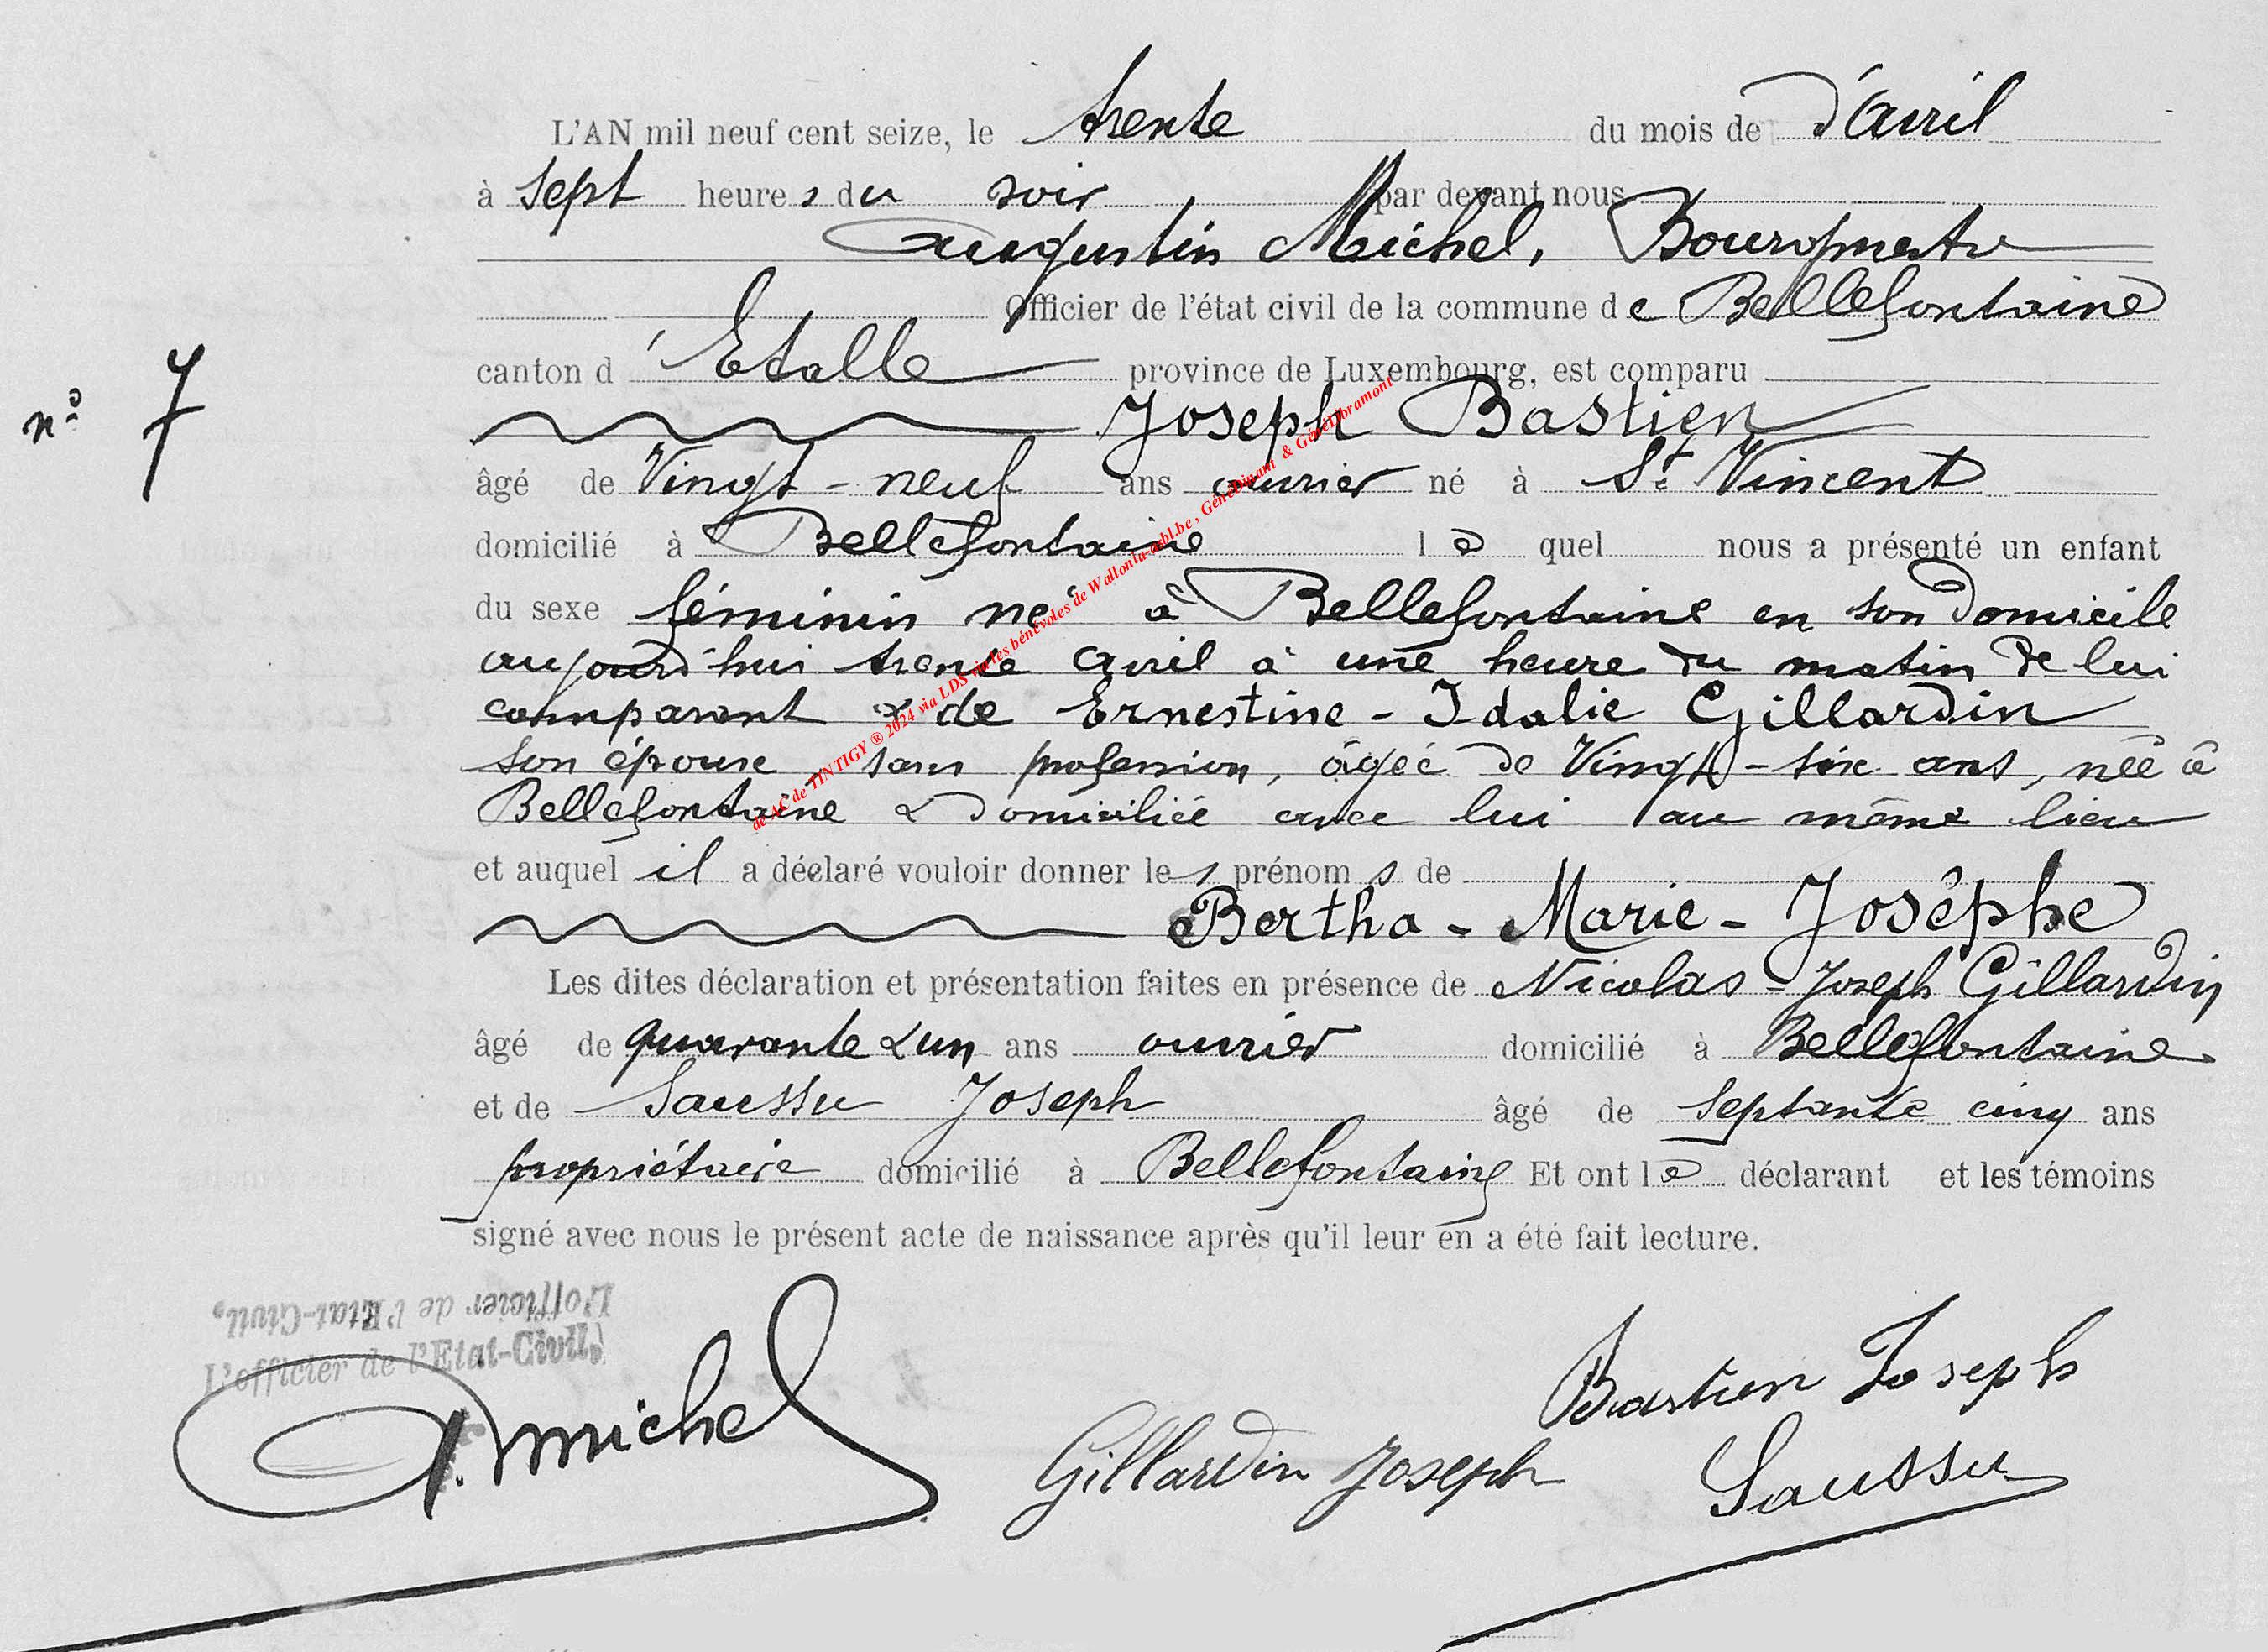 L'AN mil neuf cent seize, le trente du mois de d'avril
à sept heures du soir par devant nous
Augustin Michel, Bourgmestre
Officier de l'état civil de la commune de Bellefontaine
canton d'Etalle province de Luxembourg, est comparu
n° 7
Joseph Bastien
âgé de Vingt-neuf ans ouvrier né à St Vincent
domicilié à Bellefontaine lequel nous a présenté un enfant
du sexe féminin né à Bellefontaine en son domicile
aujourd'hui trente avril à une heure du matin de lui
comparant & de Ernestine-Idalie Gillardin
son épouse, sans profession, âgée de Vingt-six ans, née à
Bellefontaine & domiciliée avec lui au même lieu
et auquel il a déclaré vouloir donner les prénoms de
Bertha-Marie-Josèphe
Les dites déclaration et présentation faites en présence de Nicolas-Joseph Gillardin
âgé de quarante & un ans ouvrier domicilié à Bellefontaine
et de Saussu Joseph âgé de septante cinq ans
propriétaire domicilié à Bellefontaine Et ont le déclarant et les témoins
signé avec nous le présent acte de naissance après qu'il leur en a été fait lecture.
L'officier de l'Etat-Civil,
L'officier de l'Etat-Civil,
A. Michel
Bastien Joseph
Gillardin Joseph
Saussu
de AC de TINTIGY ® 2024 via LDS via les bénévoles de Wallonia-asbl.be, GénéDinant & GénéLibramont